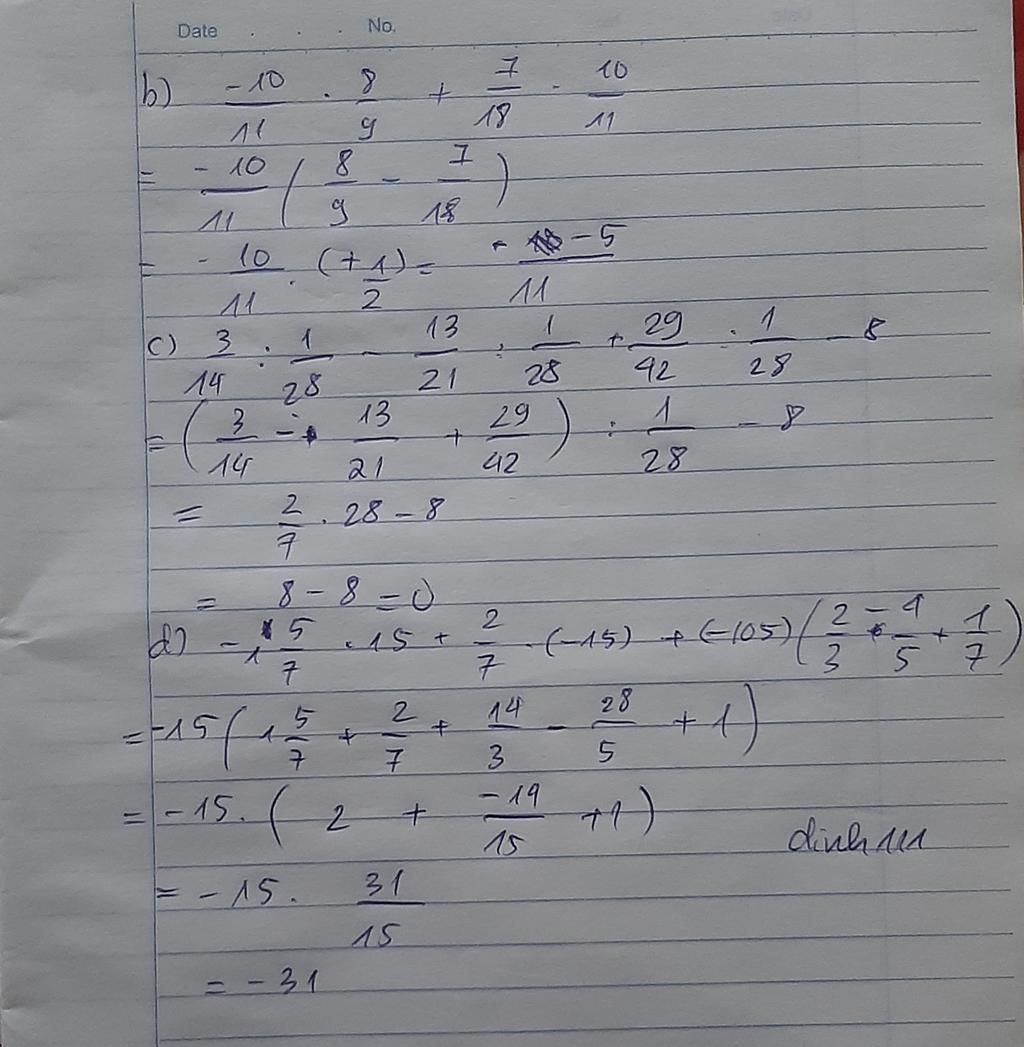 Date . . . No.
b) -10/11 . 8/9 + 7/18 . 10/11
= -10/11 ( 8/9 - 7/18 )
= -10/11 . (+1/2) = -5/11
c) 3/14 : 1/28 - 13/21 : 1/28 + 29/42 : 1/28 - 8
= ( 3/14 - 13/21 + 29/42 ) : 1/28 - 8
= 2/7 . 28 - 8
= 8 - 8 = 0
d) -1 5/7 . 15 + 2/7 . (-15) + (-105) ( 2/3 - 4/5 + 1/7 )
= -15 ( 1 5/7 + 2/7 + 14/3 - 28/5 + 1 )
= -15 . ( 2 + -14/15 + 1 )
dinh 111
= -15 . 31/15
= -31